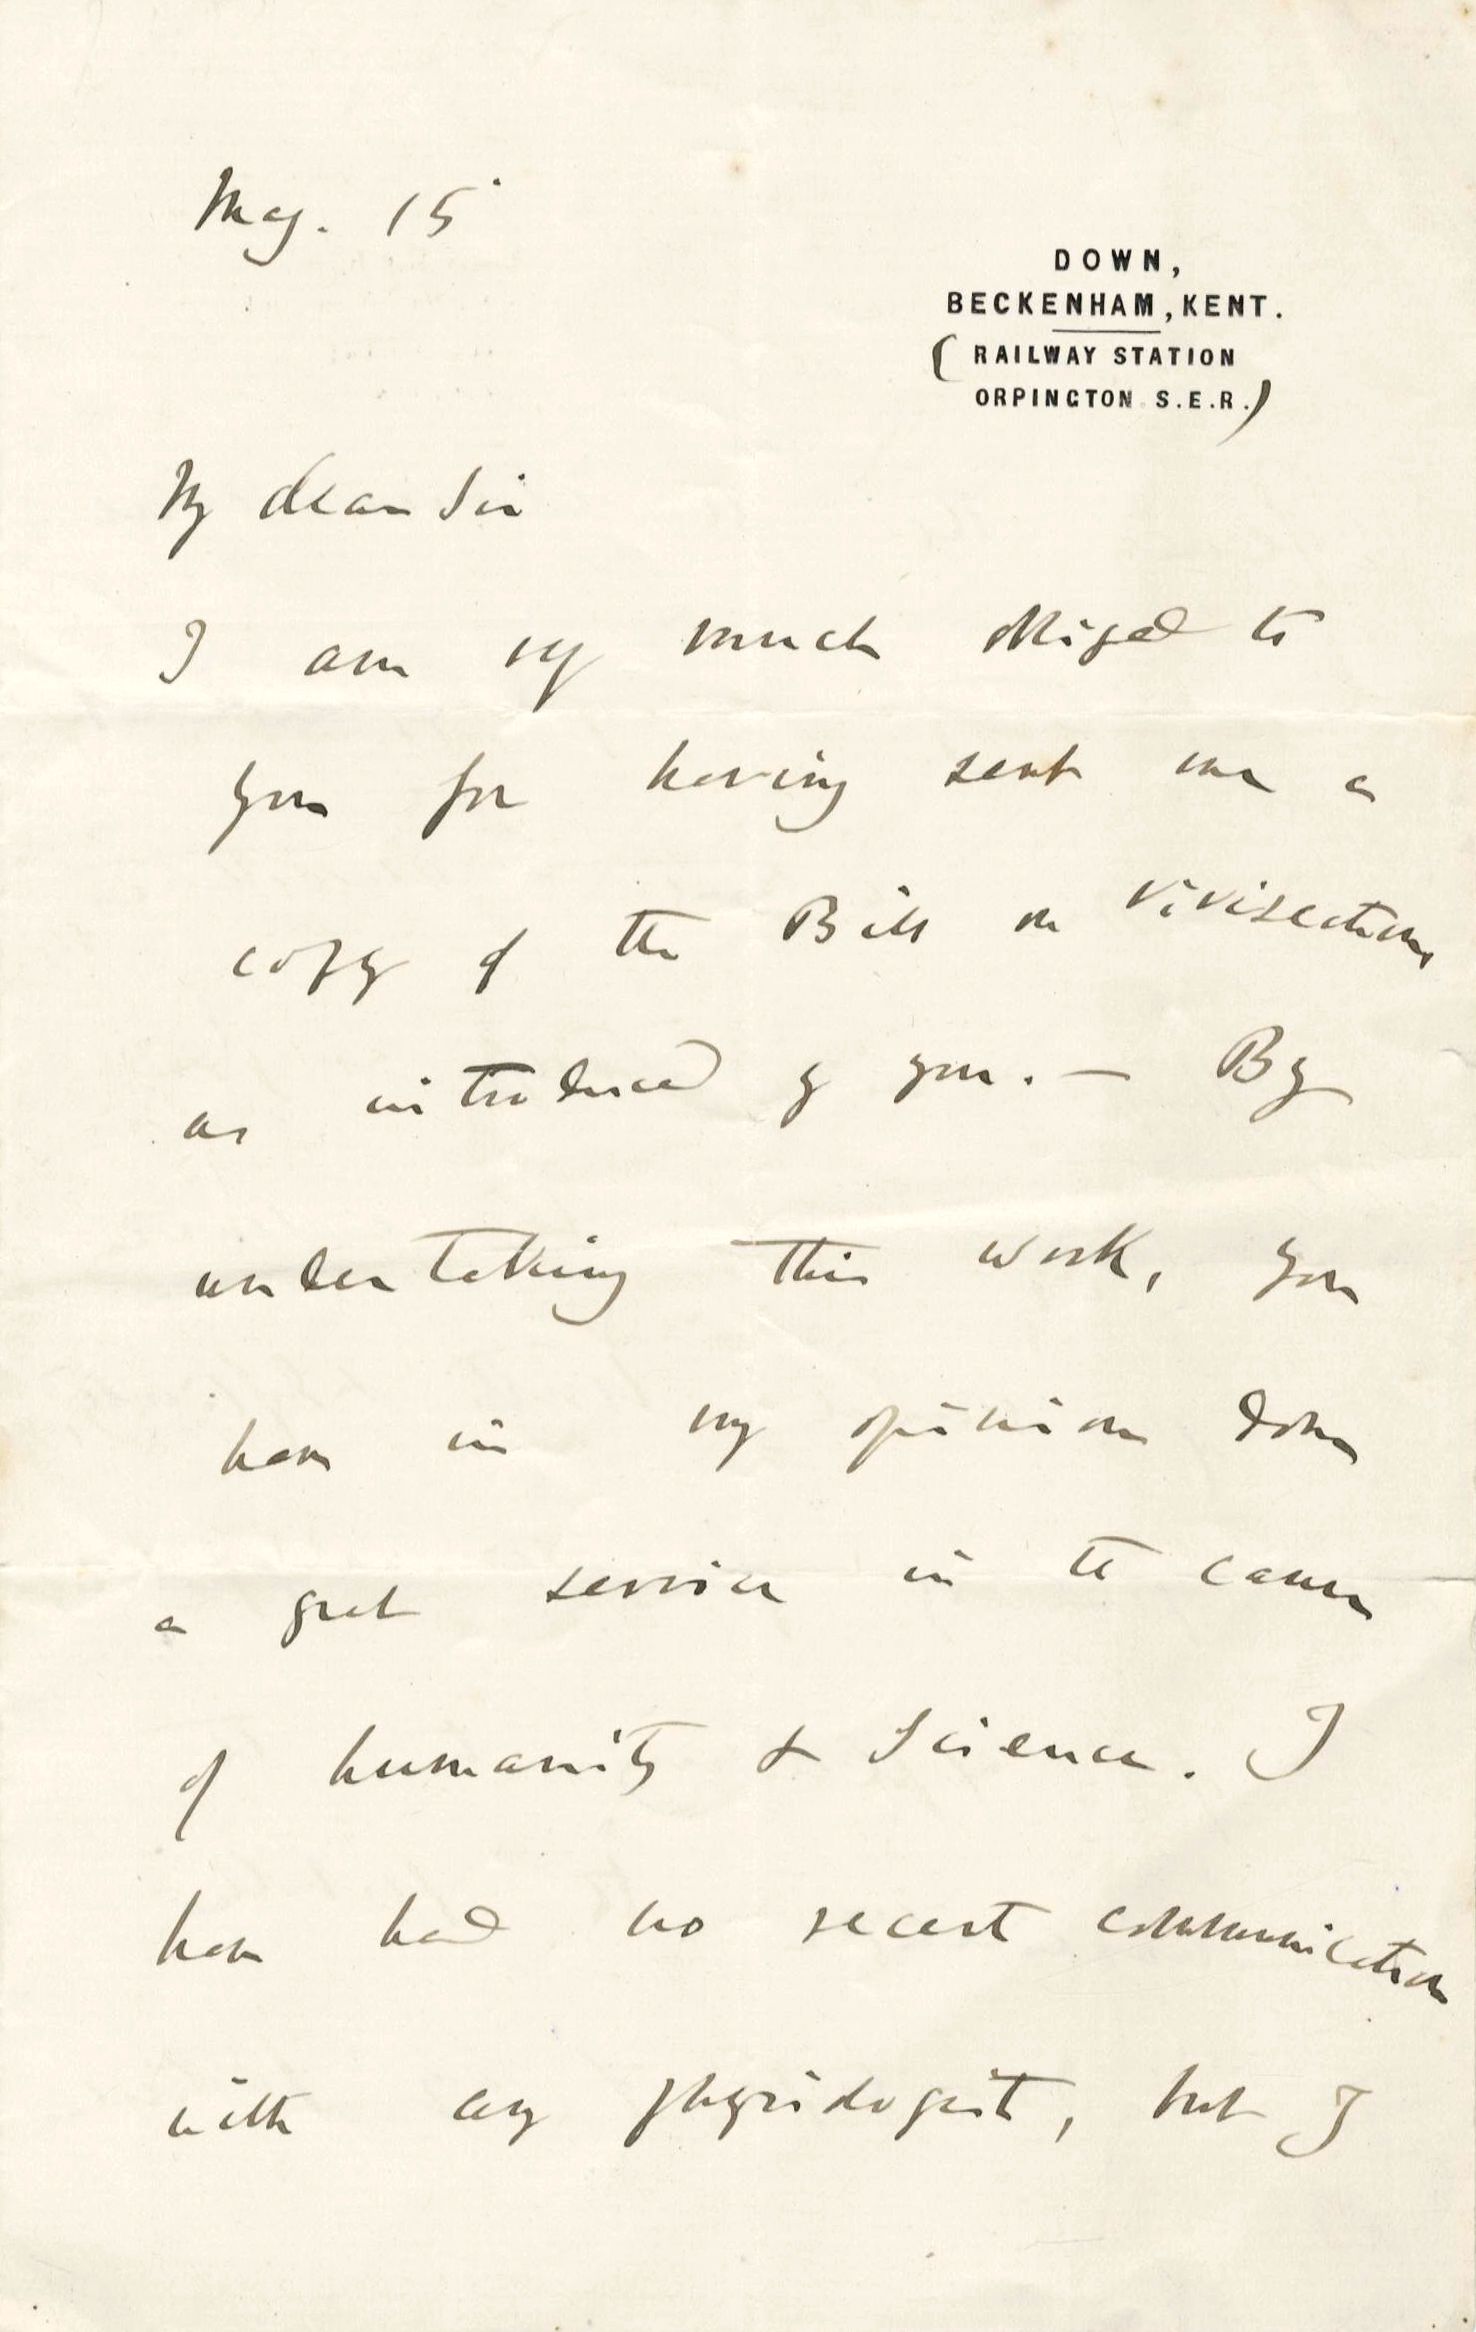 May. 15
DOWN,
BECKENHAM, KENT.
(RAILWAY STATION
ORPINGTON. S.E.R.)
My dear Sir
I am very much obliged to
you for having sent me a
copy of the Bill on Vivisection,
as introduced by you. — By
undertaking this work, you
have in my opinion done
a great service in the cause
of humanity & Science. I
have had no recent communication
with any physiologist, but I